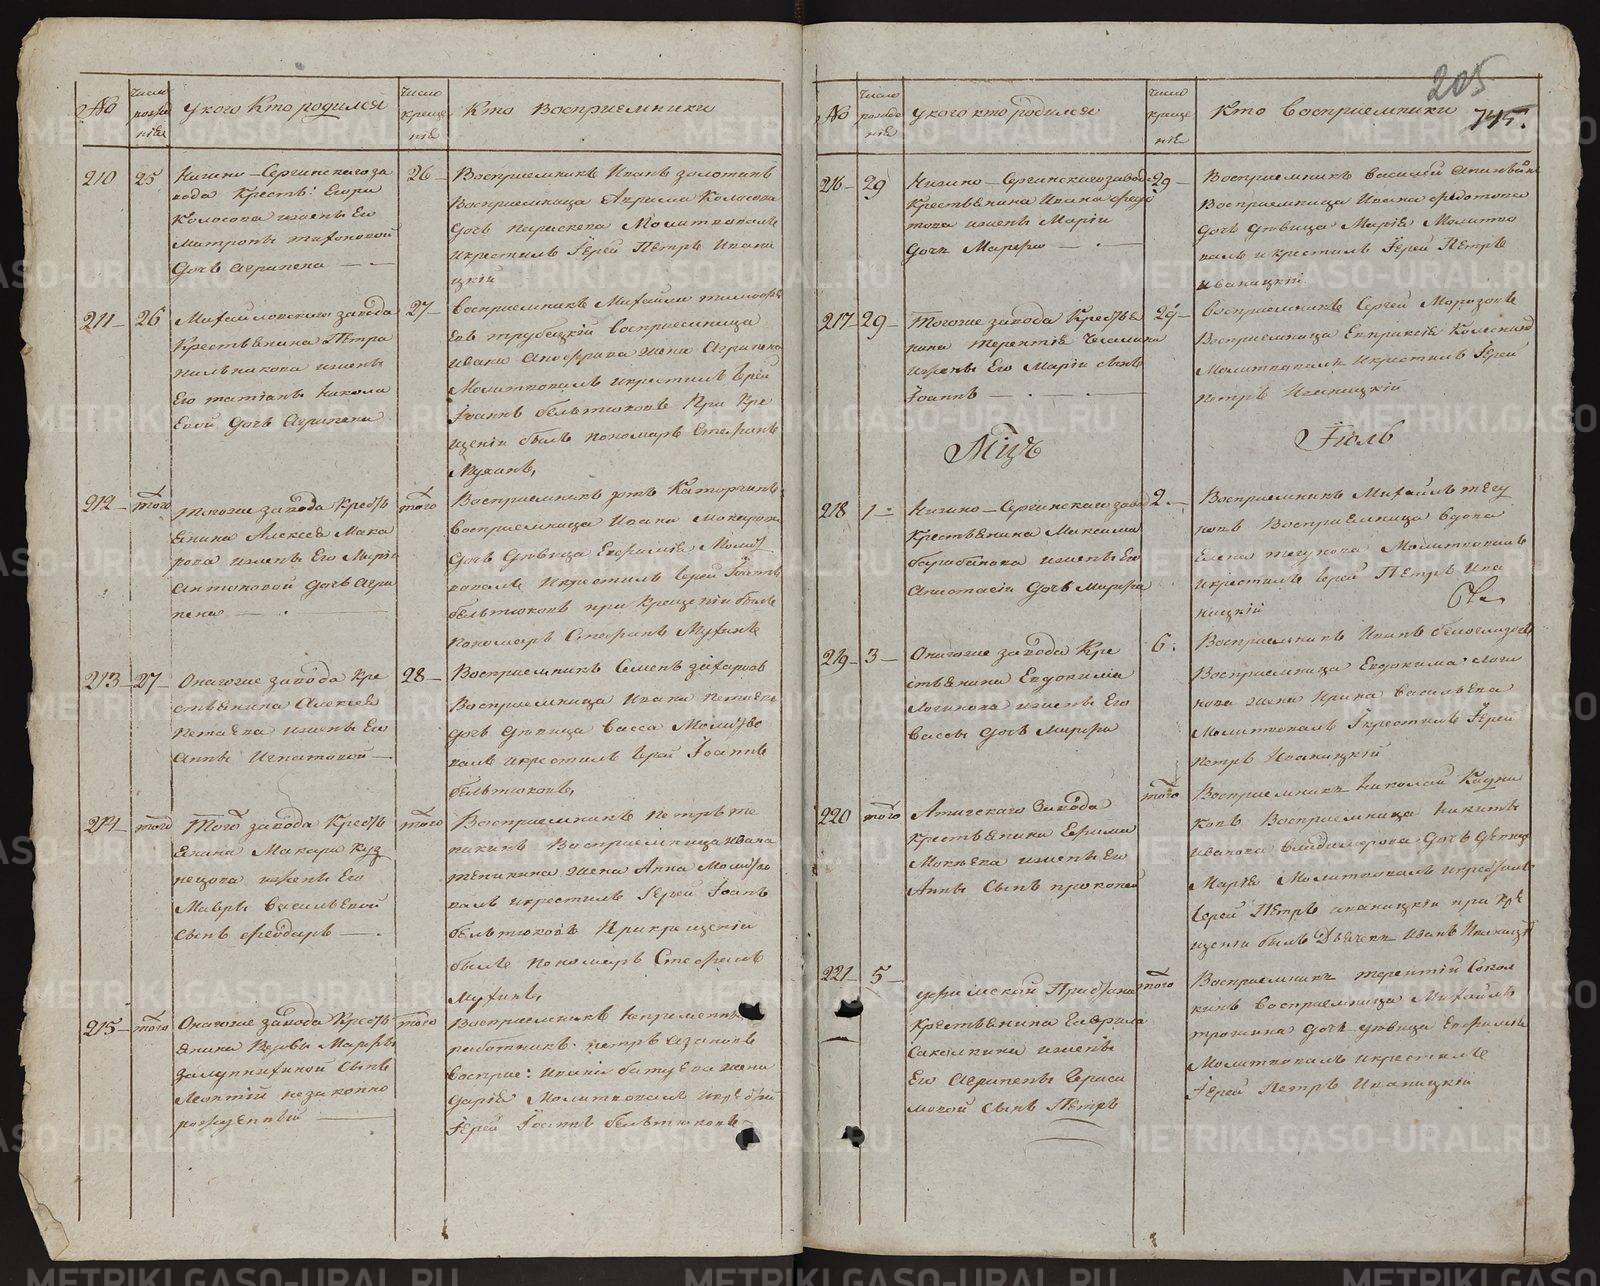 №
Число рожденія
У кого Кто родился
Число крещенія
Кто Восприемники
210
25
Нижно-Сергинскаго за
вода Крестья: Егора
Колосова и жены Его
Матроны Тихоновой
дочь Агрипена
26
Восприемникъ Иванъ Золотинъ
Восприемница Колосова
дочь Параскева Молитвовалъ
и крестилъ Іерей Петръ Ивани
цкій
211
26
Михайловскаго завода
Крестьянина Петра
Пильникова и жены
Его Татіаны Никола
Евой дочь Агрипена
27
Восприемникъ Михайло Тимофе
Евъ Трубецкій Восприемница
Ивана жена Агрипена
Молитвовалъ и крестилъ Іерей
Іоаннъ Бѣльтюковъ При Кре
щеніи былъ пономаръ Стефанъ
Мухинъ,
212
того
Тогоже завода Кресть
янина Алексея Мака
рова и жены Его Маріи
Антоновой дочь Агри
пена
того
Восприемникъ Каторгинъ
Восприемница Ивана Макарова
дочь дѣвица Ефимія Молит
вовалъ и крестилъ Іерей Іоаннъ
Бѣльтюковъ при крещеніи былъ
Пономаръ Стефанъ Мухинъ
213
27
Онагоже завода Кре
стьянина Алексея
Петаева и жены Его
Анны Игнатовой
28
Восприемникъ Семенъ Захаровъ
Восприемница Ивана Петаева
дочь дѣвица Васса Молитво
валъ и крестилъ Іерей Іоаннъ
Бѣльтюковъ,
214
того
Того завода Кресть
янина Макара Куз
нецова и жены Его
Мавры Васильевой
сынъ Феодаръ
того
Восприемникъ Петръ Те
никинъ Восприемница Ивана
Теникина жена Анна Молитво
валъ и крестилъ Іерей Іоанъ
Бѣльтюковъ При крещеніи
былъ Пономаръ Стефанъ
Мухинъ,
215
того
Онагоже завода Кресть
янина Марфы
сынъ
Леонтій незаконно
рожденный
того
Восприемникъ Непременны
работникъ Петръ Азановъ
Восприе: Ивана Батуева жена
Дарія Молитвовалъ
Іерей Іоаннъ Бѣльтюковъ
205
745.
№
Число рожденія
У кого кто родился
Число крещенія
Кто Восприемники
216
29
Нижно-Сергинскаго завода
Крестьянина Ивана Федо
това и жены Маріи
дочь Марфа
29
Восприемникъ Василій
Восприемница Ивана Федотова
дочь дѣвица Марія Молитво
валъ и крестилъ Іерей Петръ
Иваницкій
217
29
Тогоже завода Крестья
нина Терентія
и жены Его Маріи сынъ
Іоаннъ
29
Восприемникъ Сергей Морозовъ
Восприемница Евпраксія
Молитвовалъ и крестилъ Іерей
Петръ Иваницкій
Мцъ
Іюль
218
1
Нижно-Сергинскаго заво
Крестьянина Максима
Барабанова и жены Его
Анастасіи дочь Марфа
2.
Восприемникъ Михаилъ Тягу
новъ Восприемница Вдова
Елена Тягунова Молитвовалъ
и крестилъ Іерей Петръ Ива
ницкій
219
3
Онагоже завода Кре
стьянина Евдокима
Логинова и жены Его
Вассы дочь Марфа
6.
Восприемникъ Иванъ
Восприемница Евдокима Логи
нова жена Ирина Васильева
Молитвовалъ и крестилъ Іерей
Петръ Иваницкій
220
того
Атигскаго Завода
Крестьянина Ефима
Мокѣева и жены Его
Анны Сынъ Прокопей
того
Восприемникъ Николай
Восприемница Никиты
Иванова Владимерова дочь дѣвица
Марія Молитвовалъ и крестилъ
Іерей Петръ Иваницкій при кре
щеніи былъ Дьячекъ Иванъ Иваницкій
221
5
Уфимской Пристани
Крестьянина Гаврила
Саколкина и жены
Его Агрипены Гераси
мовой Сынъ Петръ
того
Восприемникъ Терентій Сокол
кинъ Восприемница Михаила
Трошина дочь дѣвица Ефимія
Молитвовалъ и крестилъ
Іерей Петръ Иваницкій
METRIKI.GASO-URAL.RU